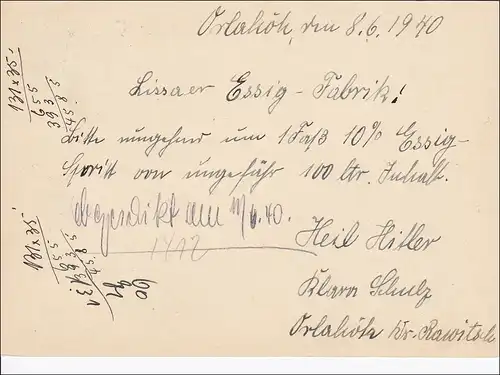 Orlahöh, den 8.6.1940
Lissaer Essig-Fabrik!
Bitte umgehend um 1 Faß 10% Essig-
Sporitt von ungefähr 100 ltr. Inhalt.
abgeschickt am 11/6.40.
1412
Heil Hitler
Klara Schulz
Orlahöh Kr. Rawitsch
131 x 35
655
393
131 x 35
655
393
60
71